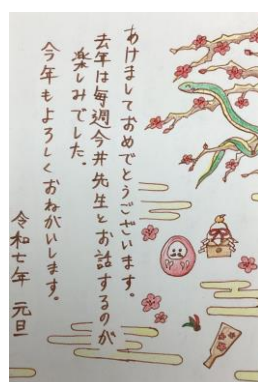 あけましておめでとうございます。
去年は毎週今井先生とお話するのが
楽しみでした。
今年もよろしくおねがいします。
令和七年 元旦